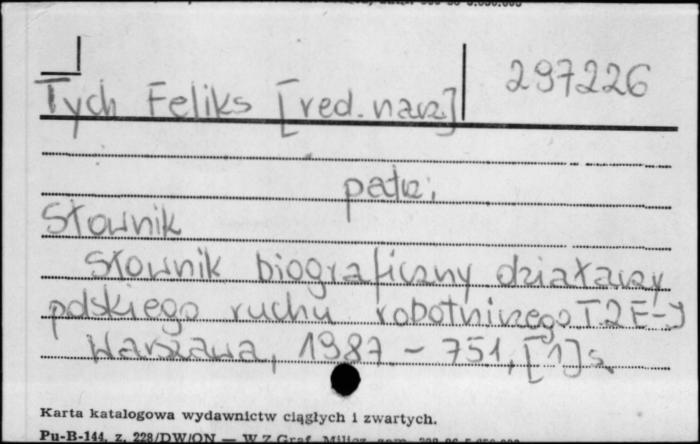 297226
Tych Feliks [red. nacz]
patrz:
Słownik
Słownik biograficzny działaczy
polskiego ruchu robotniczego T.2 E-J
Warszawa, 1987 - 751, [1] s.
Karta katalogowa wydawnictw ciągłych i zwartych.
Pu-B-144, z. 228/DW/ON — WZ Graf.